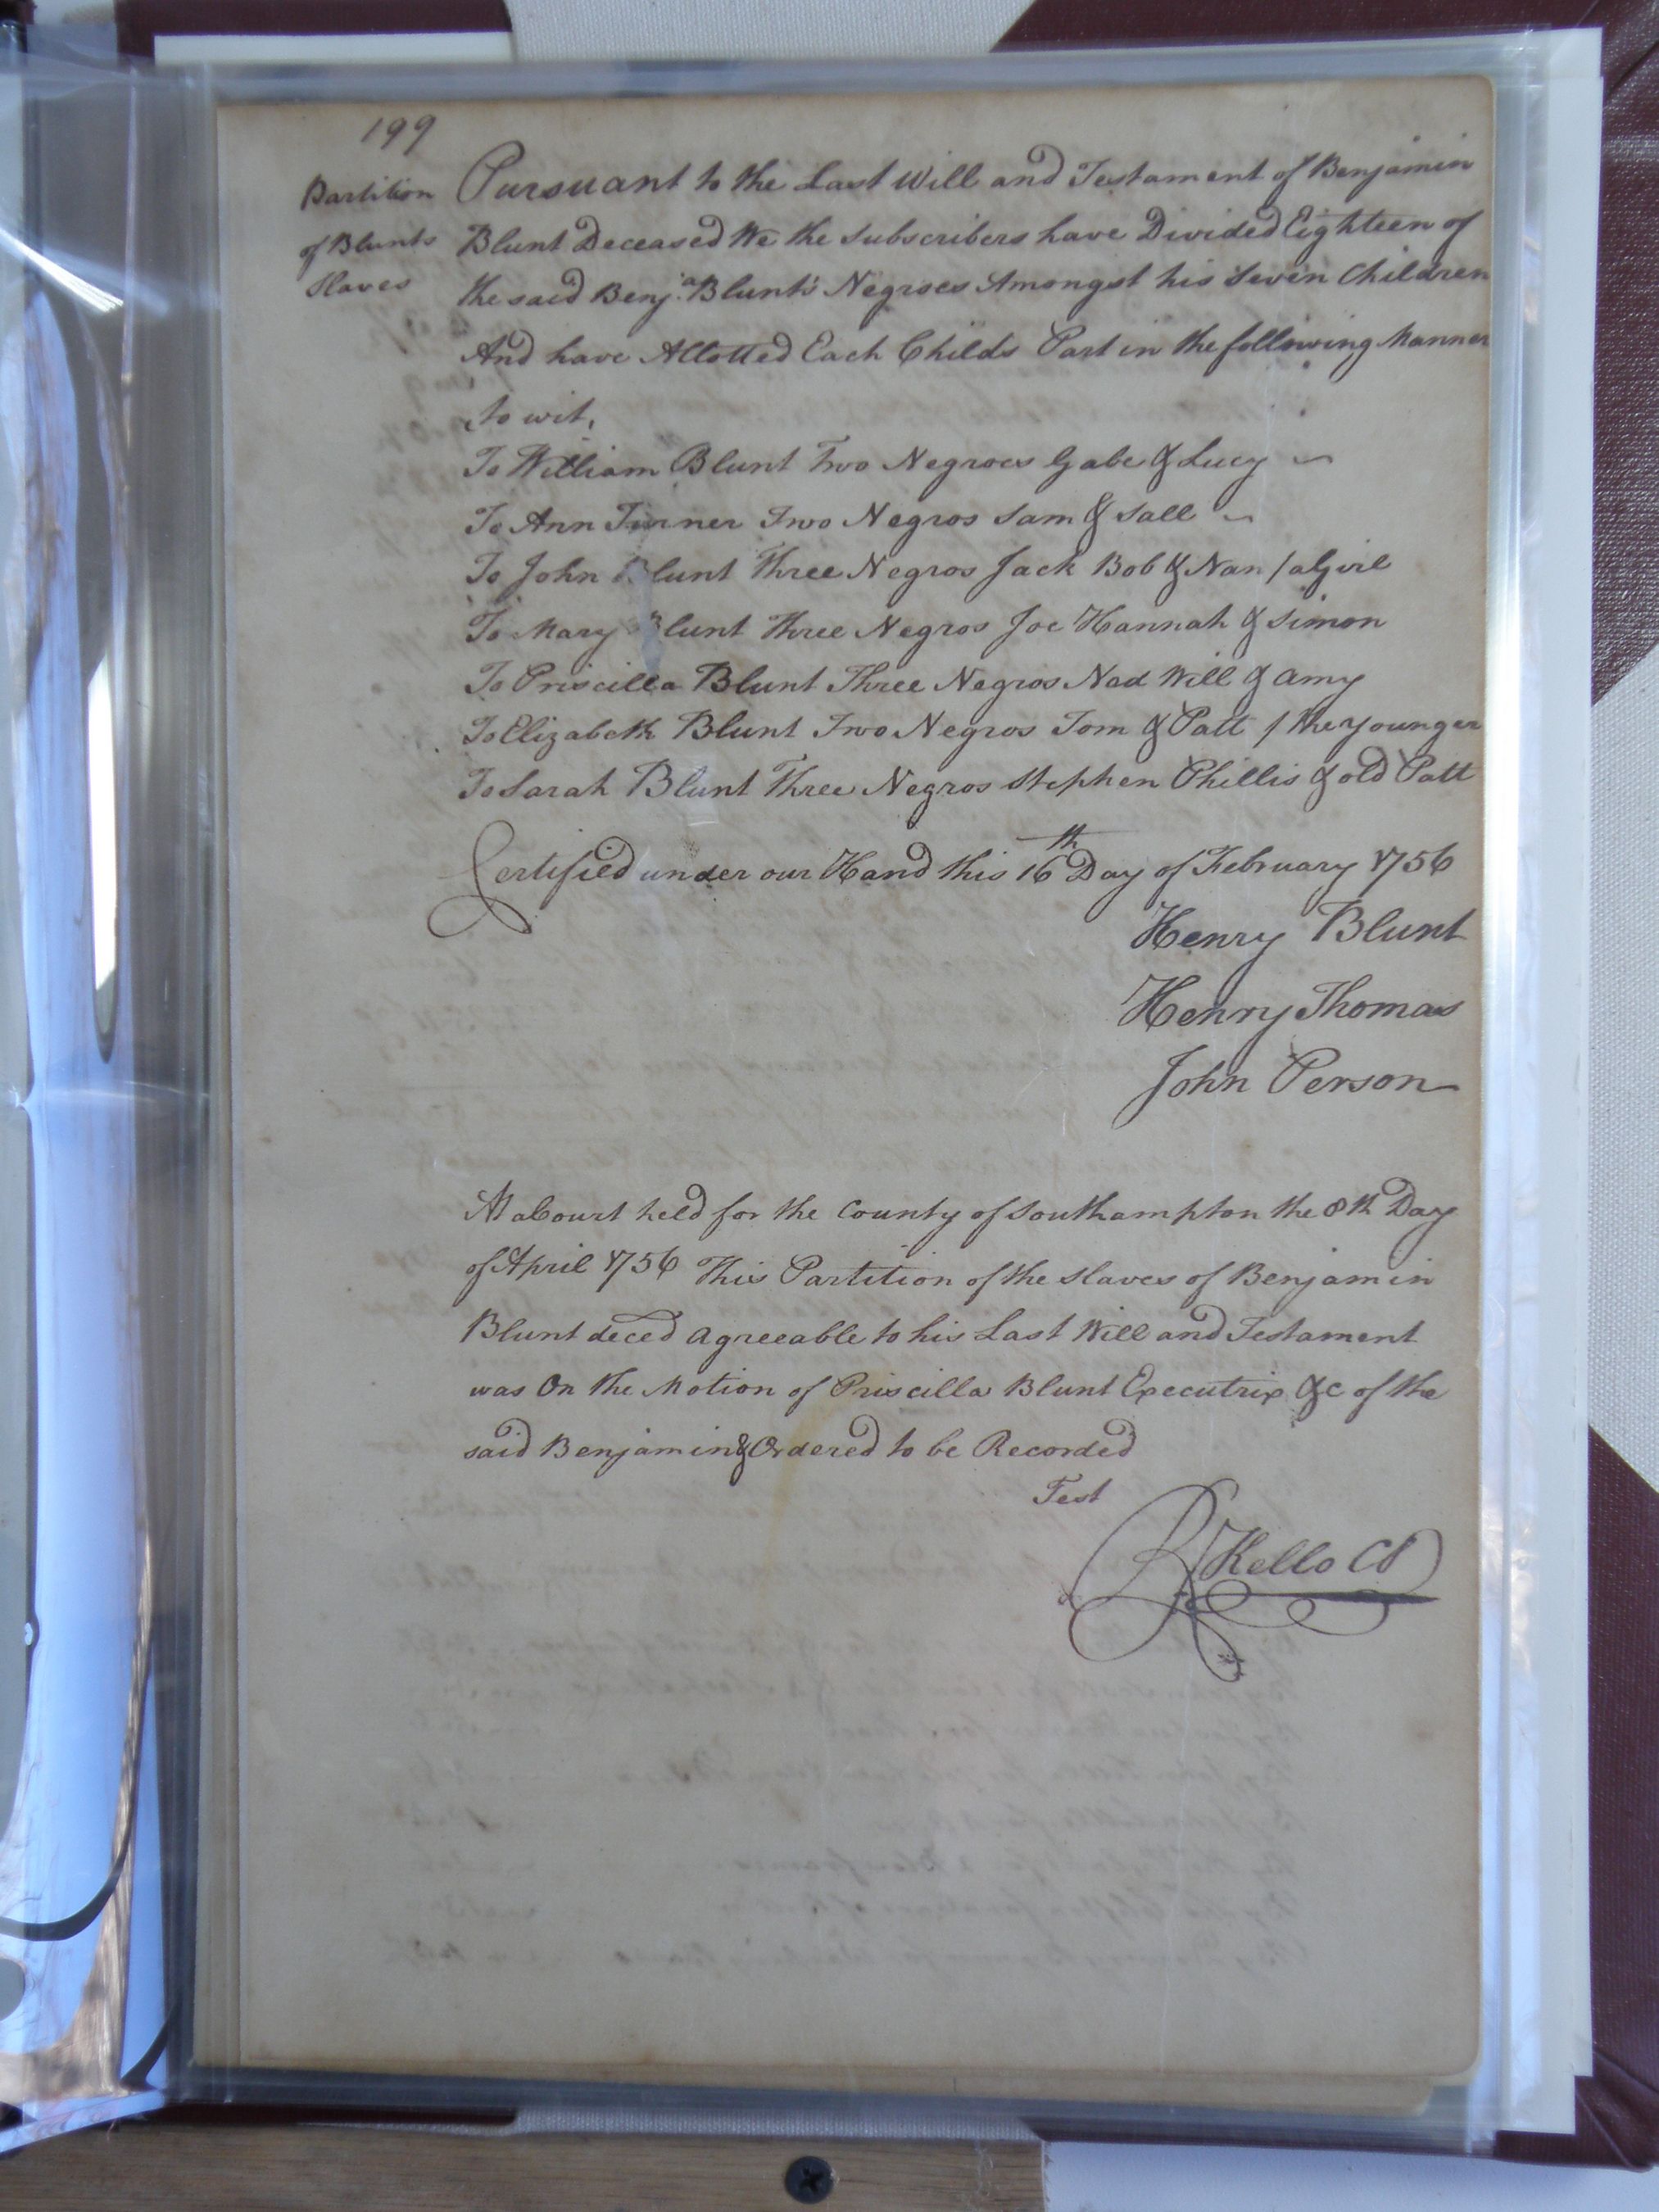 199
Partition
of Blunts
Slaves
Pursuant to the Last Will and Testament of Benjamin
Blunt Deceased We the Subscribers have Divided Eighteen of
the said Benj.ª Blunt's Negroes Amongst his Seven Children
And have Allotted Each Childs Part in the following Manner
to wit,
To William Blunt Two Negroes Gabe & Lucy
To Ann Turner Two Negros Sam & Sall
To John Blunt Three Negros Jack Bob & Nan / a Girl
To Mary Blunt Three Negros Joe Hannah & Simon
To Priscilla Blunt Three Negros Ned Will & Amy
To Elizabeth Blunt Two Negros Tom & Patt / the younger
To Sarah Blunt Three Negros Stephen Phillis & old Patt
Certified under our Hand this 16th Day of February 1756
Henry Blunt
Henry Thomas
John Person
At a Court held for the County of Southampton the 8th Day
of April 1756 This Partition of the slaves of Benjamin
Blunt deced agreeable to his Last Will and Testament
was On the Motion of Priscilla Blunt Executrix &c of the
said Benjamin & Ordered to be Recorded
Test
R Kello Cl